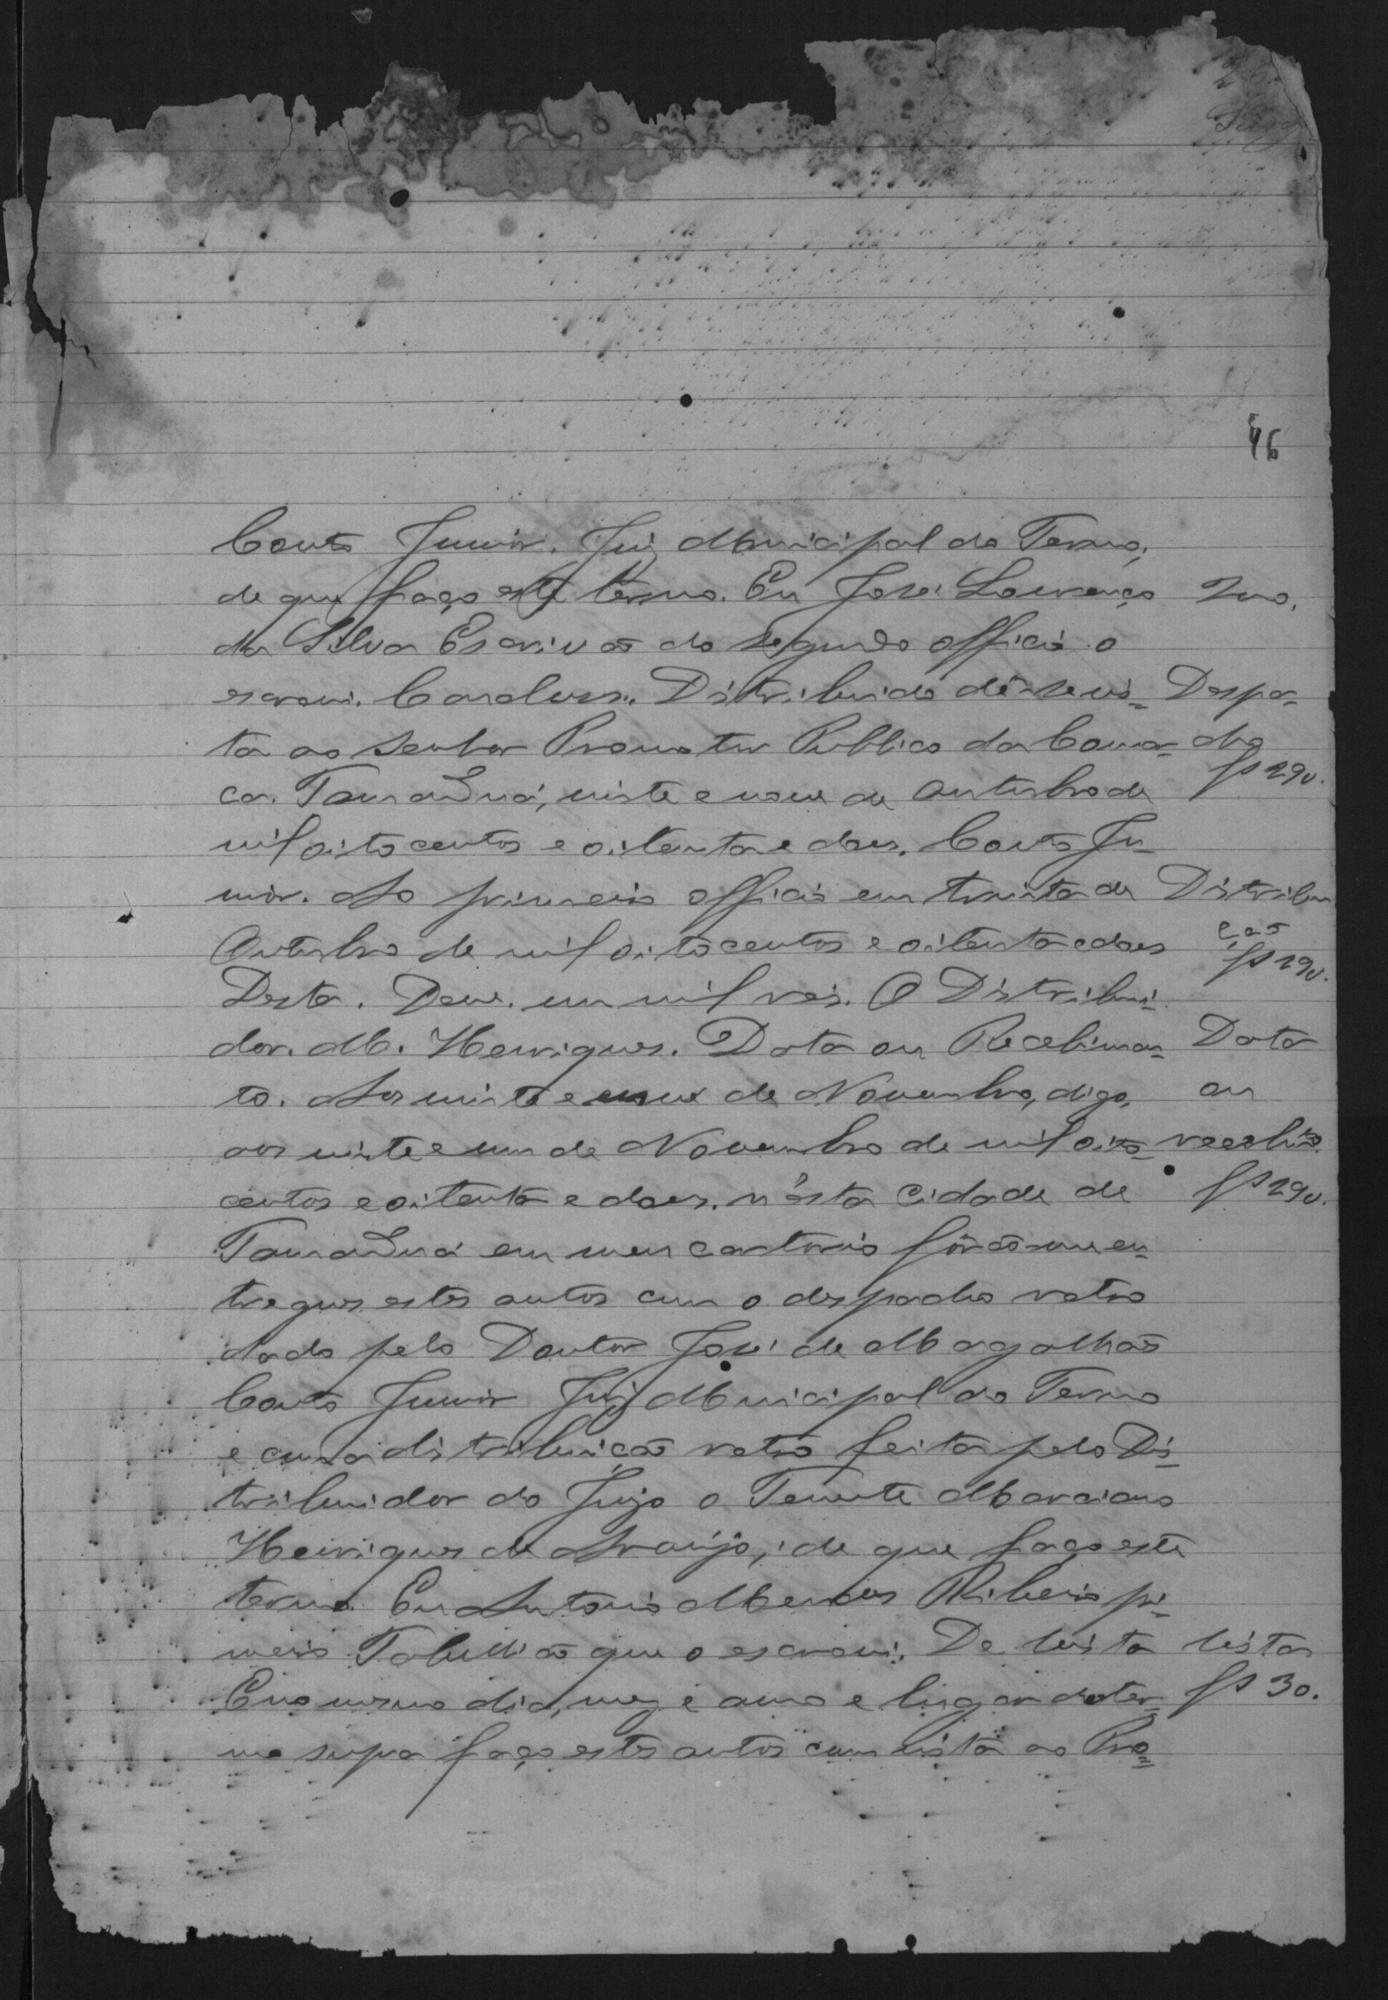 46
Couto Junior. Juiz Municipal do Termo,
de que faço este termo. Eu José Lourenço
da Silva Escrivão do segundo officio o
escrevi. Concluso. Distribuido dê-se vis=
Despa-
ta ao Senhor Promotor Publico da Comar=
cho
fs 29v.
ca. Tamanduá, vinte e nove de Outubro de
mil oito centos e oitenta e dois. Couto Ju=
nior. Ao primeiro officio em trinta de
Distribui
Outubro de mil oito centos e oitenta e dois
ção
fs 29v.
Desta. Deve. um mil reis. O Distribui-
dor. M. Henriques. Data ou Recebimen=
Data
to. Aos vinte e nove de Novembro, digo,
ou
aos vinte e um de Novembro de mil oito=
recebito
centos e oitenta e dois. n'esta Cidade de
fs 29v.
Tamanduá em meu cartorio forão me en=
tregues estes autos com o despacho retro
dado pelo Doutor José de Magalhãs
Couto Junior Juiz Municipal do Termo
e com a distribuição retro feita pelo Dis=
tribuidor do Juizo o Tenente Marciano
Henriques de Araújo, de que faço este
termo. Eu Antonio Mendes Ribeiro pri=
meiro Tabellião que o escrevi. De Vista
Vista
E no mesmo dia, mez e anno e lugar do ter=
fs 30.
mo supra faço estes autos com vista ao Pro=